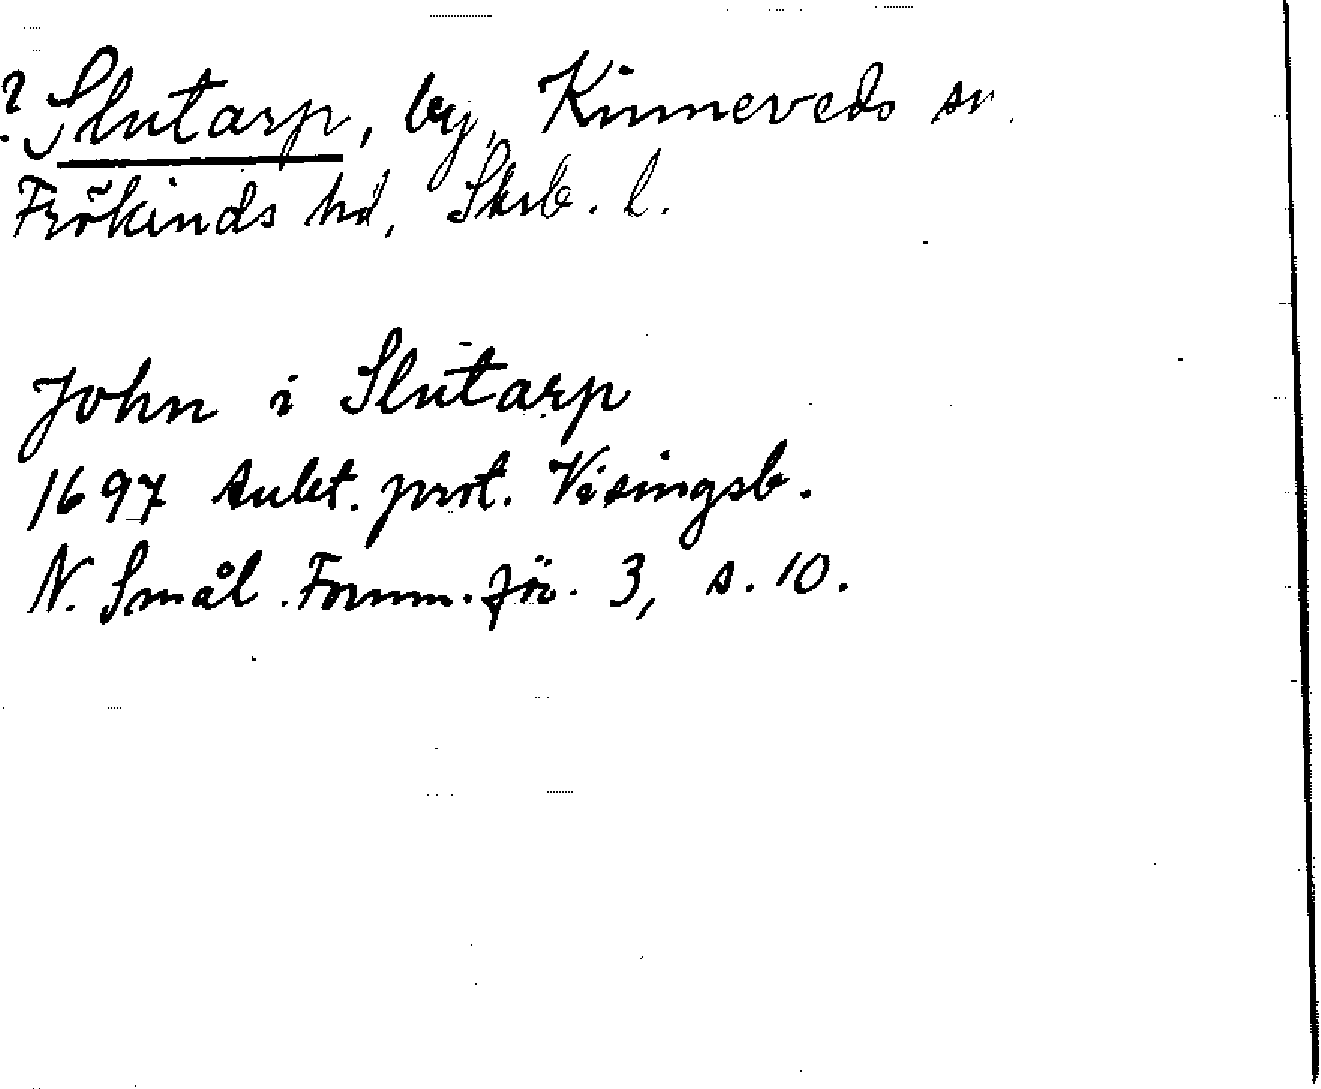 ? Slutarp, by, Kinneveds sn.
Frökinds hd, Skrb. l.
John i Slutarp
1697 Aukt. prot. Visingsb.
N. Smål. Fornm. för. 3, s. 10.